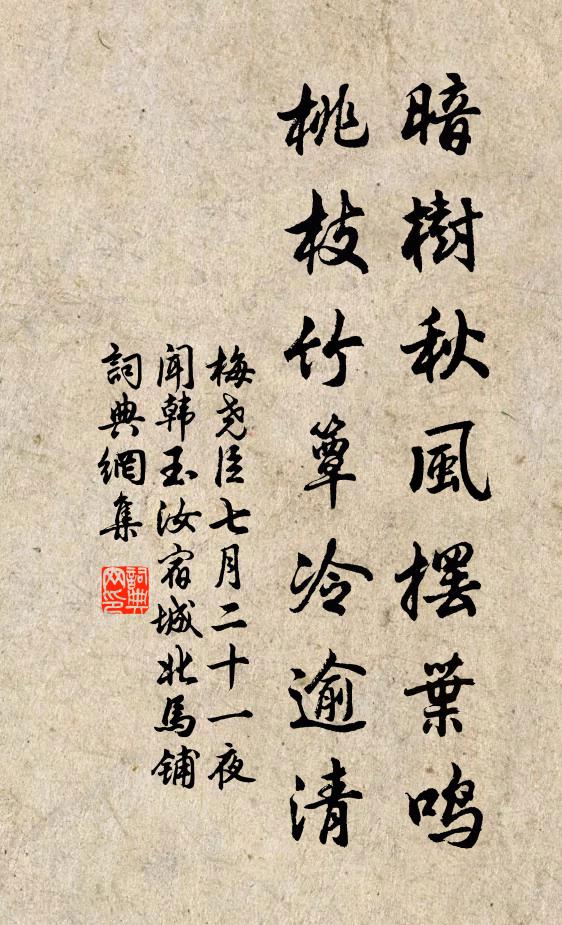 暗樹秋風擺葉鳴
桃枝竹簟冷逾清
梅尧臣七月二十一夜
聞韩玉汝宿城北馬铺
詞典網集
詞典
网印